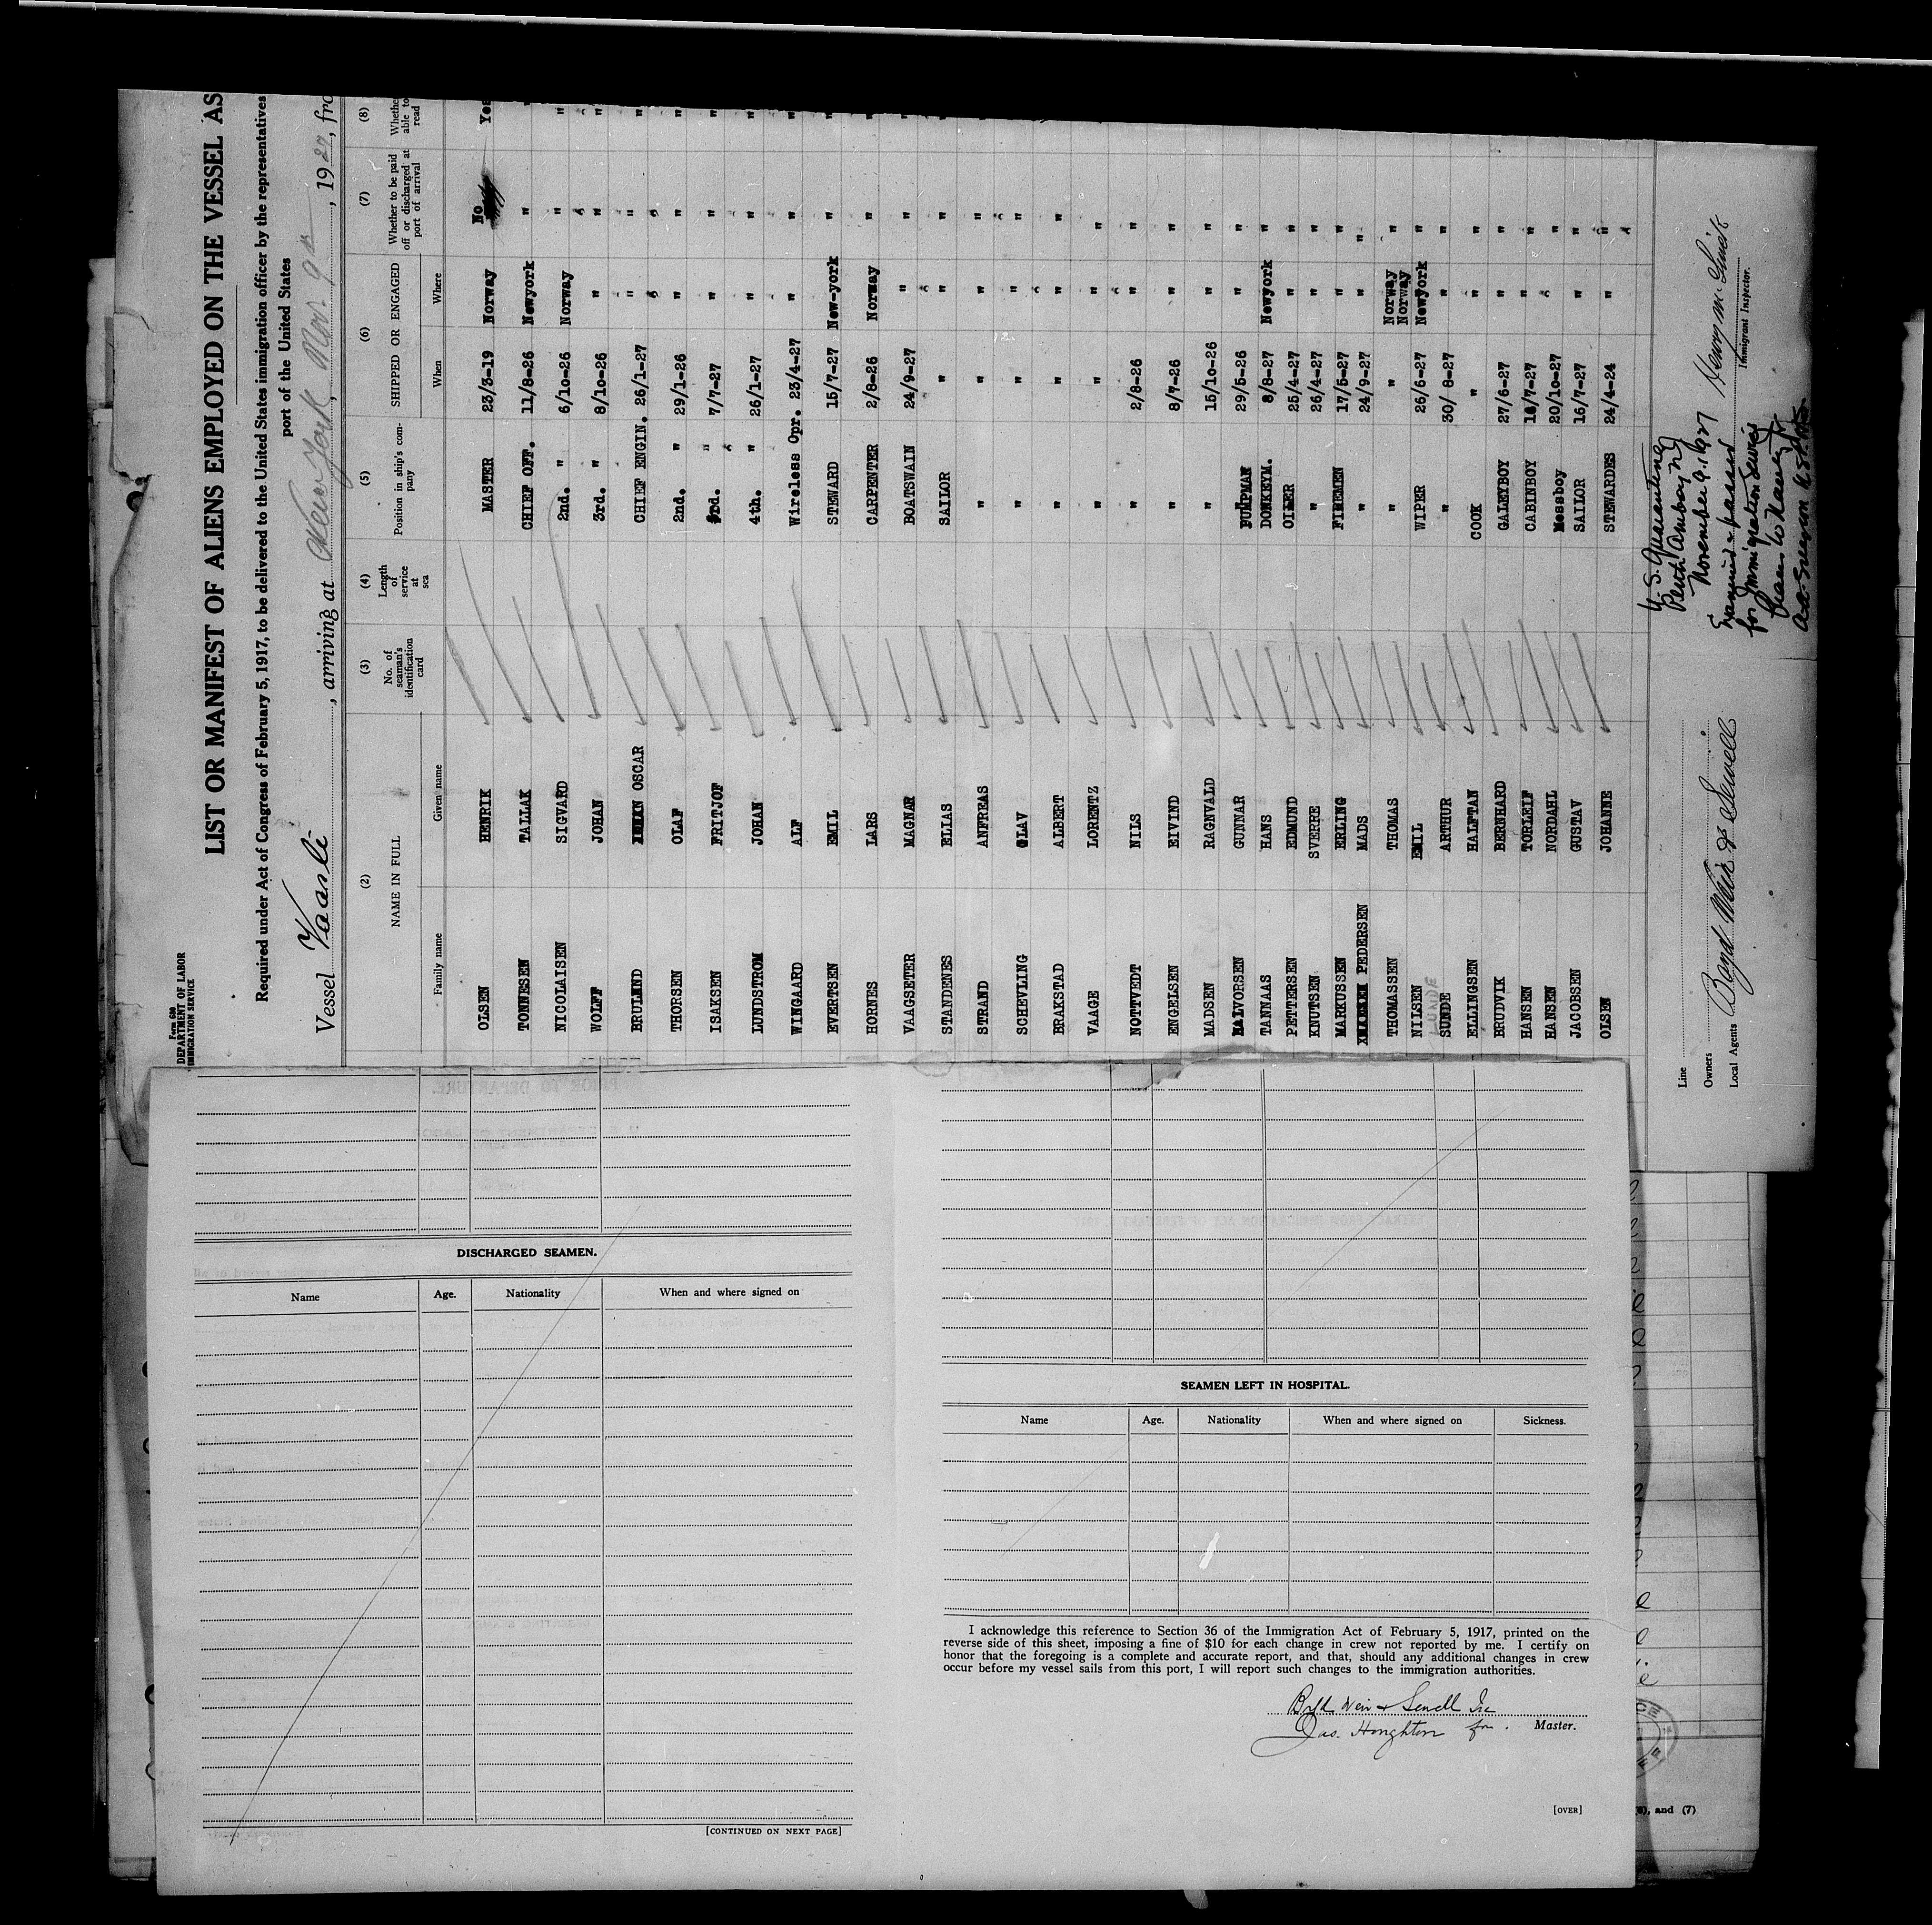 Form 680
DEPARTMENT OF LABOR
IMMIGRATION SERVICE
LIST OR MANIFEST OF ALIENS EMPLOYED ON THE VESSEL AS
Required under Act of Congress of February 5, 1917, to be delivered to the United States immigration officer by the representatives
port of the United States
Vessel Vaarli, arriving at New York Nov 9th, 1927, fro
(2) (3) (4) (5) (6) (7) (8)
NAME IN FULL No. of seaman's identification card Length of service at sea Position in ship's company SHIPPED OR ENGAGED Whether to be paid off or discharged at port of arrival Whether able to read
Family name Given name When Where
OLSEN HENRIK MASTER 23/3-19 Norway No Yes
TONNESEN TALLAK CHIEF OFF. 11/8-26 Newyork "
NICOLAISEN SIGVARD 2nd. " 6/10-26 Norway " "
WOLFF JOHAN 3rd. " 8/10-26 " " "
BRULAND OSCAR CHIEF ENGIN. 26/1-27 " " "
THORSEN OLAF 2nd. " 29/1-26 " " "
ISAKSEN FRITJOF 3rd. " 7/7-27 " " "
LUNDSTROM JOHAN 4th. " 26/1-27 " " "
WINGAARD ALF Wireless Opr. 23/4-27 " " "
EVERTSEN EMIL STEWARD 15/7-27 New-york " "
HORNES LARS CARPENTER 2/8-26 Norway " "
VAAGSETER MAGNAR BOATSWAIN 24/9-27 " " "
STANDENES ELIAS SAILOR " " "
STRAND ANFREAS " " " "
SCHEVLING OLAV " " " "
BRAKSTAD ALBERT " " " "
VAAGE LORENTZ " " " "
NOTTVEDT NILS " 2/8-26 " "
ENGELSEN EIVIND " 8/7-26 " "
MADSEN RAGNVALD " 15/10-26 " "
HALVORSEN GUNNAR PUMPMAN 29/5-26 " "
TANNAAS HANS DONKEYM. 8/8-27 Newyork "
PETTERSEN EDMUND OILER 25/4-27 " "
KNUTSEN SVERRE " 26/4-27 " "
MARKUSSEN ERLING FIREMEN 17/5-27 " "
PEDERSEN MADS " 24/9-27 " "
THOMASSEN THOMAS " " Norway "
Norway
NILSEN EMIL WIPER 26/6-27 Newyork "
LUNDE
SUNDE ARTHUR " 30/8-27 " "
ELLINGSEN HALFTAN COOK " " "
BRUDVIK BERNHARD GALEYBOY 27/6-27 " "
HANSEN TORLEIF CABINBOY 18/7-27 " "
HANSEN NORDAHL Messboy 20/10-27 " "
JACOBSEN GUSTAV SAILOR 16/7-27 " "
OLSEN JOHANNE STEWARDES 24/4-24 " "
Line
Owners
Local Agents Boyd Weir & Sewell
U. S. Quarantine
Perth Amboy NJ
November 9. 1927
Examined & passed
for Immigration Service
Immigrant Inspector.
DISCHARGED SEAMEN.
Name Age. Nationality When and where signed on
[CONTINUED ON NEXT PAGE]
SEAMEN LEFT IN HOSPITAL.
Name Age. Nationality When and where signed on Sickness.
I acknowledge this reference to Section 36 of the Immigration Act of February 5, 1917, printed on the
reverse side of this sheet, imposing a fine of $10 for each change in crew not reported by me. I certify on
honor that the foregoing is a complete and accurate report, and that, should any additional changes in crew
occur before my vessel sails from this port, I will report such changes to the immigration authorities.
Boyd Weir & Sewell Inc
Jas. Houghton for. Master.
[OVER]
, and (7)